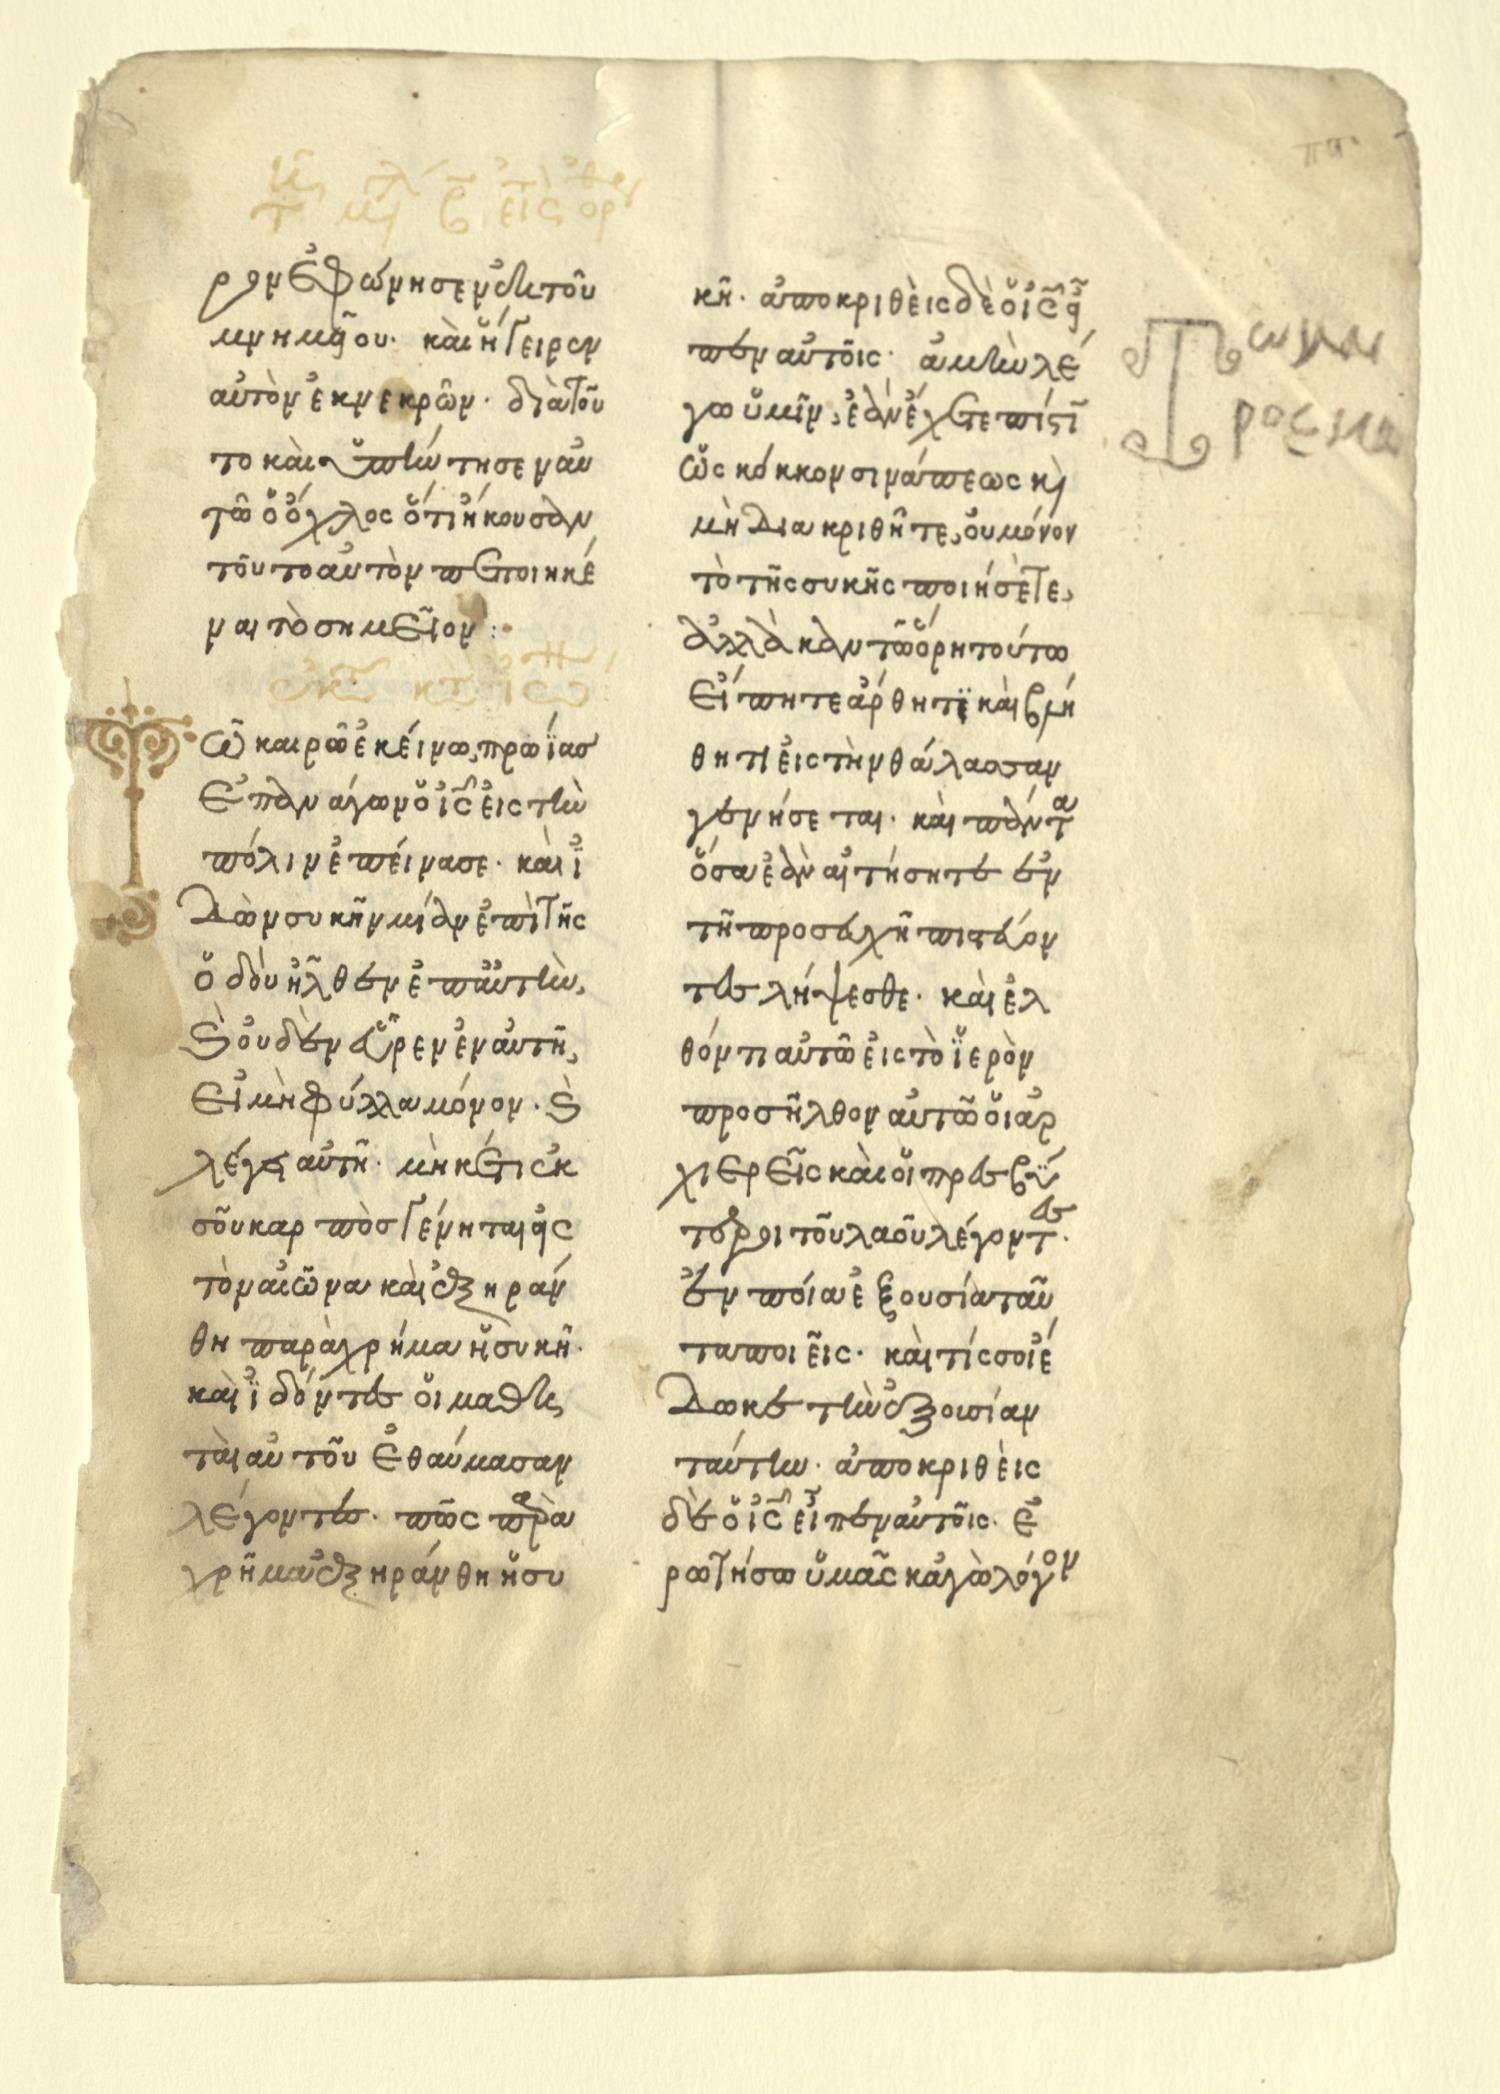 ρον ἐφώνησεν ἐκ τοῦ
μνημείου· καὶ ἤγειρεν
αὐτὸν ἐκ νεκρῶν· διὰ τοῦ
το καὶ ὑπήντησεν αὐ
τῶ ὁ ὄχλος ὅτι ἤκουσαν
τοῦτο αὐτὸν πεποιηκέ
ναι τὸ σημεῖον:
ῶ καιρῶ ἐκείνω, πρωΐασ
ἐπανάγων ὁ ις εἰς τὴν
πόλιν ἐπείνασε· καὶ ἰ
δὼν συκῆν μίαν ἐπὶ τῆς
ὁδοῦ ἦλθεν ἐπ αὐτὴν,
ϗ οὐδὲν εὗρεν ἐν αὐτῆ,
εἰ μὴ φύλλα μόνον· ϗ
λέγει αὐτῆ· μηκέτι ἐκ
σοῦ καρπὸσ γένηται εἰς
τὸν αἰῶνα καὶ ἐξηράν
θη παράχρήμα ἡ συκῆ·
καὶ ἰδόντες οἱ μαθη
ταὶ αὐτοῦ ἐθαύμασαν
λέγοντες· πῶς παρὰ
χρῆμα ἐξηράνθη ἡ συ
κῆ· ἀποκριθεὶς δὲ ὁ ις εἶ
πεν αὐτοῖς· ἀμὴν λέ
γω ὑμῖν, ἐὰν ἔχετε πίστι
ὡς κόκκον σινάπεως κὶ
μὴ διακριθῆτε, οὐ μόνον
τὸ τῆς συκῆς ποιήσετε,
ἀλλὰ κἂν τῶ ὄρη τούτω
εἴπητε ἄρθητι καὶ βλή
θητι εἰς τὴν θάλασσαν
γενήσεται· καὶ πάντα
ὅσα ἐὰν αἰτήσητε ἐν
τῆ προσευχῆ πιστεύον
τες λήψεσθε· καὶ ἐλ
θόντι αὐτῶ εἰς τὸ ἱερὸν
προσῆλθον αὐτῶ οἱ ἀρ
χιερεῖς καὶ οἱ πρεσβύ
τεροι τοῦ λαοῦ λέγοντες·
ἐν ποία ἐξουσία ταῦ
τα ποιεῖς· καὶ τίς σοι ἔ
δωκε τὴν ἐξουσίαν
ταύτην· ἀποκριθεὶς
δὲ ὁ ις εἶπεν αὐτοῖς· ἐ
ρωτήσω ὑμᾶς κἀγὼ λόγον